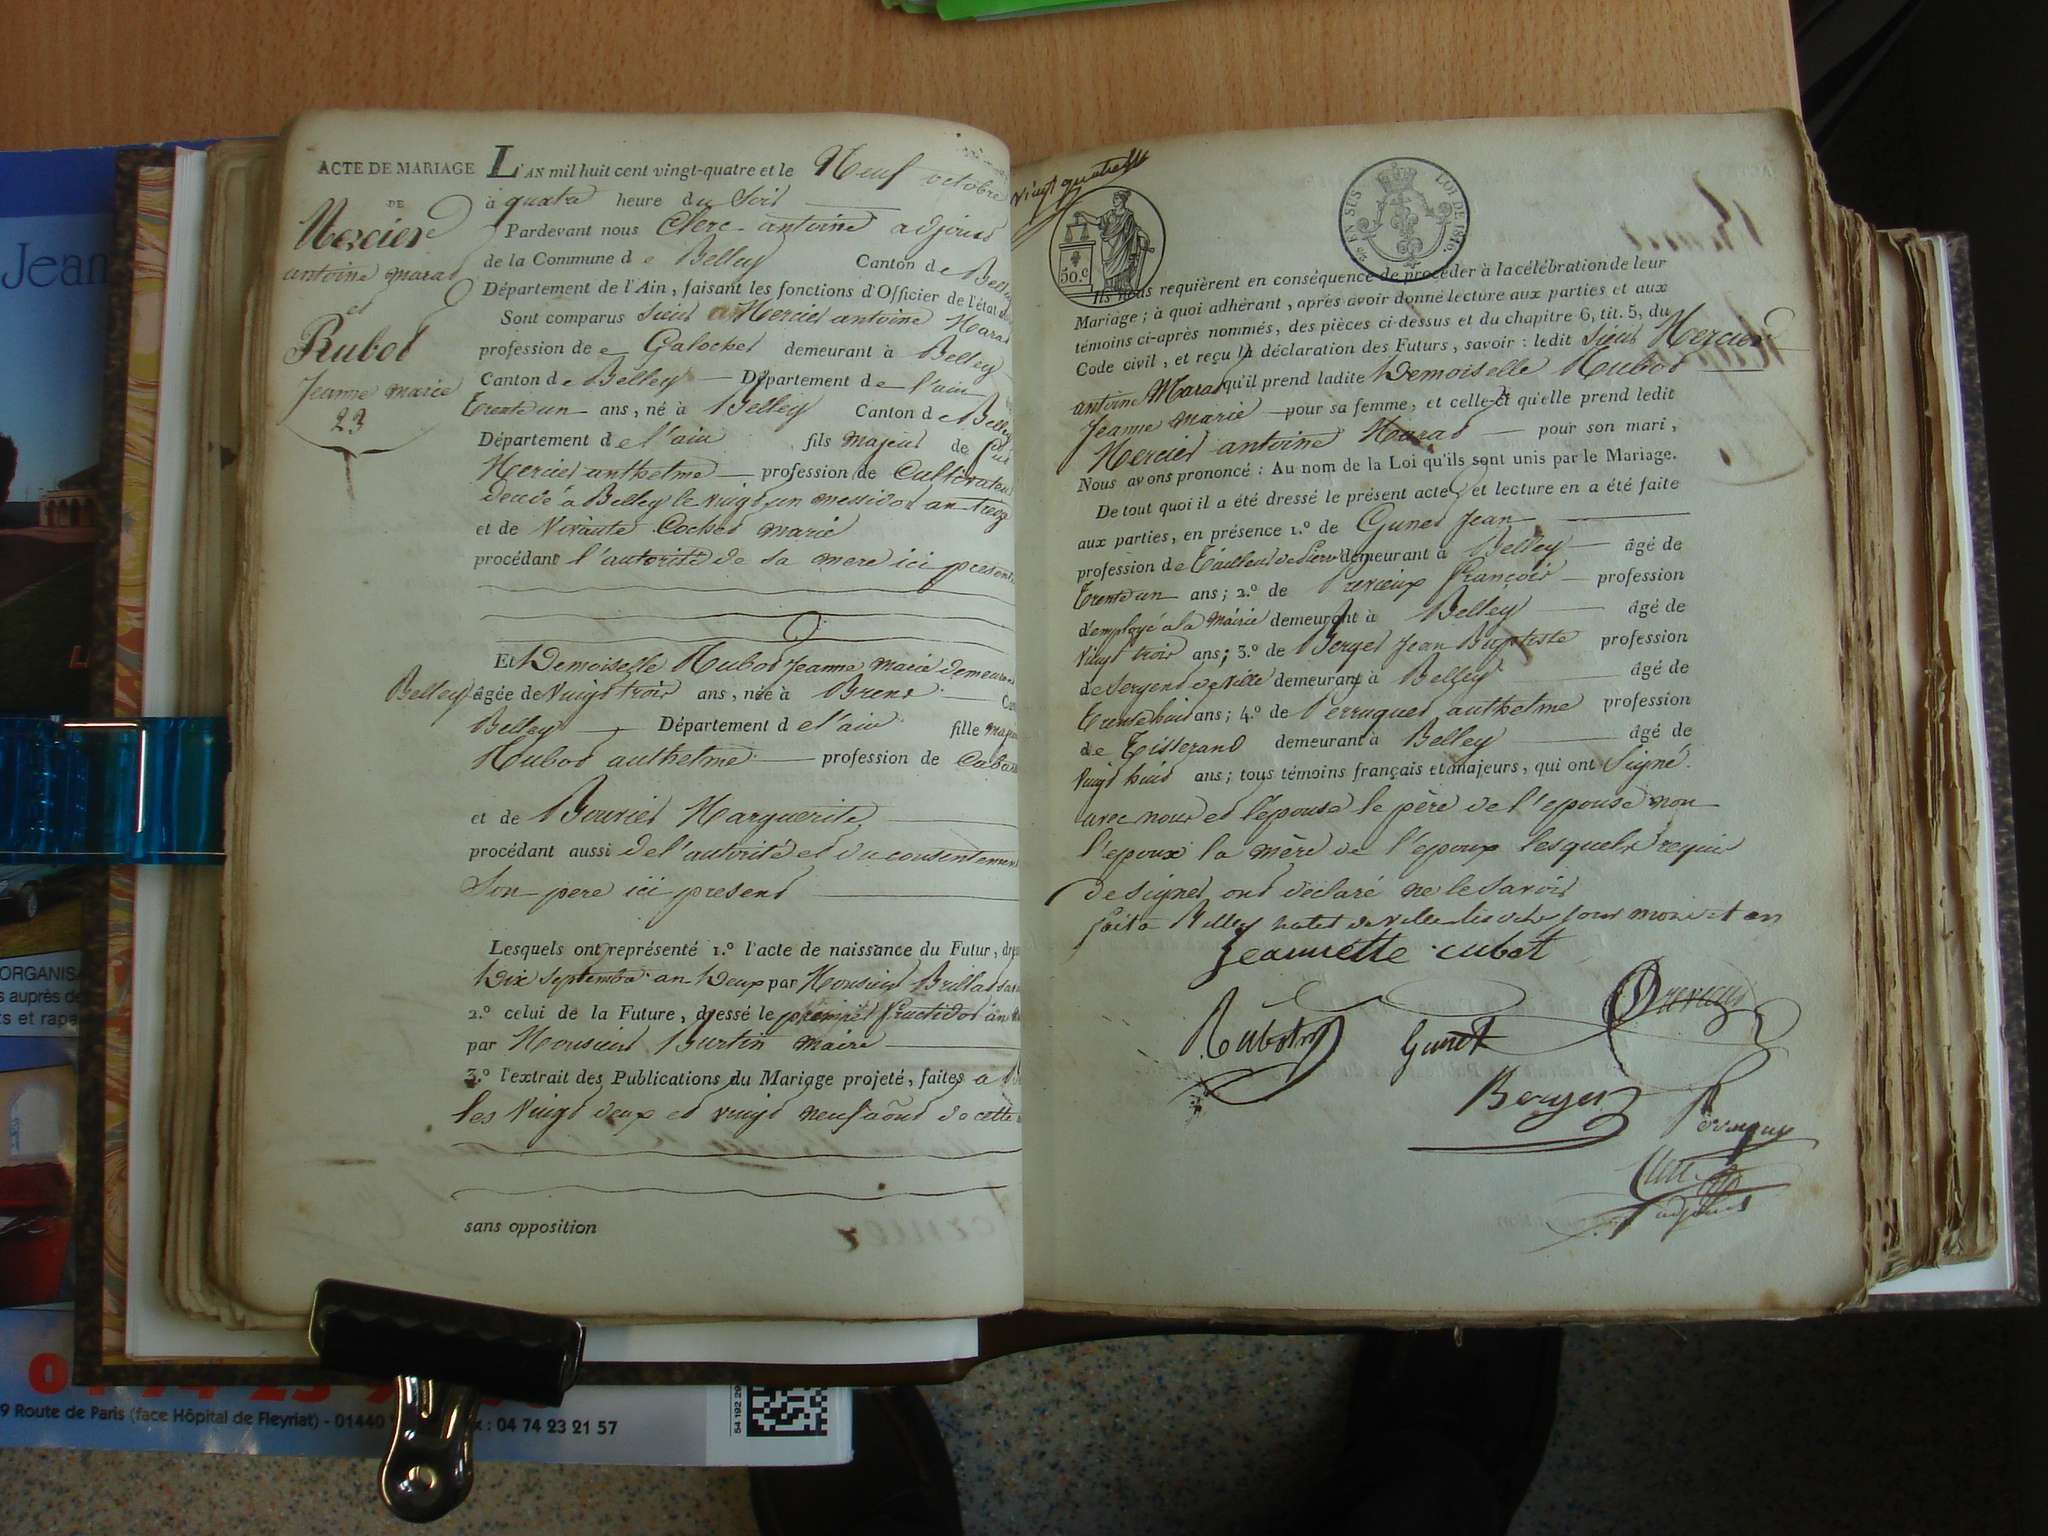 ACTE DE MARIAGE
DE
Mercier
antoine marat
et
Rubod
Jeanne marie
23
L'AN mil huit cent vingt-quatre et le Neuf octobre
à quatre heure du Soir
Pardevant nous Clerc antoine adjoint
de la Commune de Belley Canton de Belley
Département de l'Ain, faisant les fonctions d'Officier de l'état
Sont comparus Sieur Mercier antoine Marat
profession de Galochet demeurant à Belley
Canton de Belley Département de l'ain
Trente un ans, né à Belley Canton de Belley
Département de l'ain fils majeur de feu
Mercier anthelme profession de Cultivateur
décédé à Belley le Vingt un messidor an treize
et de Vivante Cochet marie
procédant l'autorité de sa mere ici present
Et Demoiselle Rubod Jeanne marie demeurant
Belley âgée de Vingt trois ans, née à Brens
Belley Département de l'ain fille
Rubod anthelme profession de
et de Bouvier Marguerite
procédant aussi de l'autorité et du consentement
Son pere ici present
Lesquels ont représenté 1.º l'acte de naissance du Futur,
Dix Septembre an Deux par Monsieur
2.º celui de la Future, dressé le premier fructidor an
par Monsieur Burtin maire
3.º l'extrait des Publications du Mariage projeté, faites a
les Vingt deux et vingt neuf août de cette
sans opposition
Vingt quatre
50.c
EN SUS
LOI DE 1816
Ils nous requièrent en conséquence de procéder à la célébration de leur
Mariage; à quoi adhérant, après avoir donné lecture aux parties et aux
témoins ci-après nommés, des pièces ci-dessus et du chapitre 6, tit. 5, du
Code civil, et reçu la déclaration des Futurs, savoir: ledit Sieur Mercier
antoine Marat qu'il prend ladite Demoiselle Rubod
Jeanne marie pour sa femme, et celle-ci qu'elle prend ledit
Mercier antoine Marat pour son mari,
Nous avons prononcé: Au nom de la Loi qu'ils sont unis par le Mariage.
De tout quoi il a été dressé le présent acte, et lecture en a été faite
aux parties, en présence 1.º de Gunet Jean
profession de Tailleur de Pierre demeurant à Belley âgé de
Trente un ans; 2.º de Prerieux François profession
d'employé a la Mairie demeurant à Belley âgé de
Vingt trois ans; 3.º de Berger Jean Baptiste profession
de Sergent de Ville demeurant à Belley âgé de
Trente huit ans; 4.º de Perruquet anthelme profession
de Tisserand demeurant à Belley âgé de
Vingt huit ans; tous témoins français et majeurs, qui ont Signé
avec nous et l'epouse le père de l'epouse non
l'epoux la mère de l'epoux lesquels requis
de signer ont déclaré ne le savoir
fait a Belley hotel de ville les dits jour mois et an
Jeannette rubot
Rubod
Gunet
Berger
adjoint
Jean
ORGANIS
auprès de
9 Route de Paris (face Hôpital de Fleyriat) - 01440
: 04 74 23 21 57